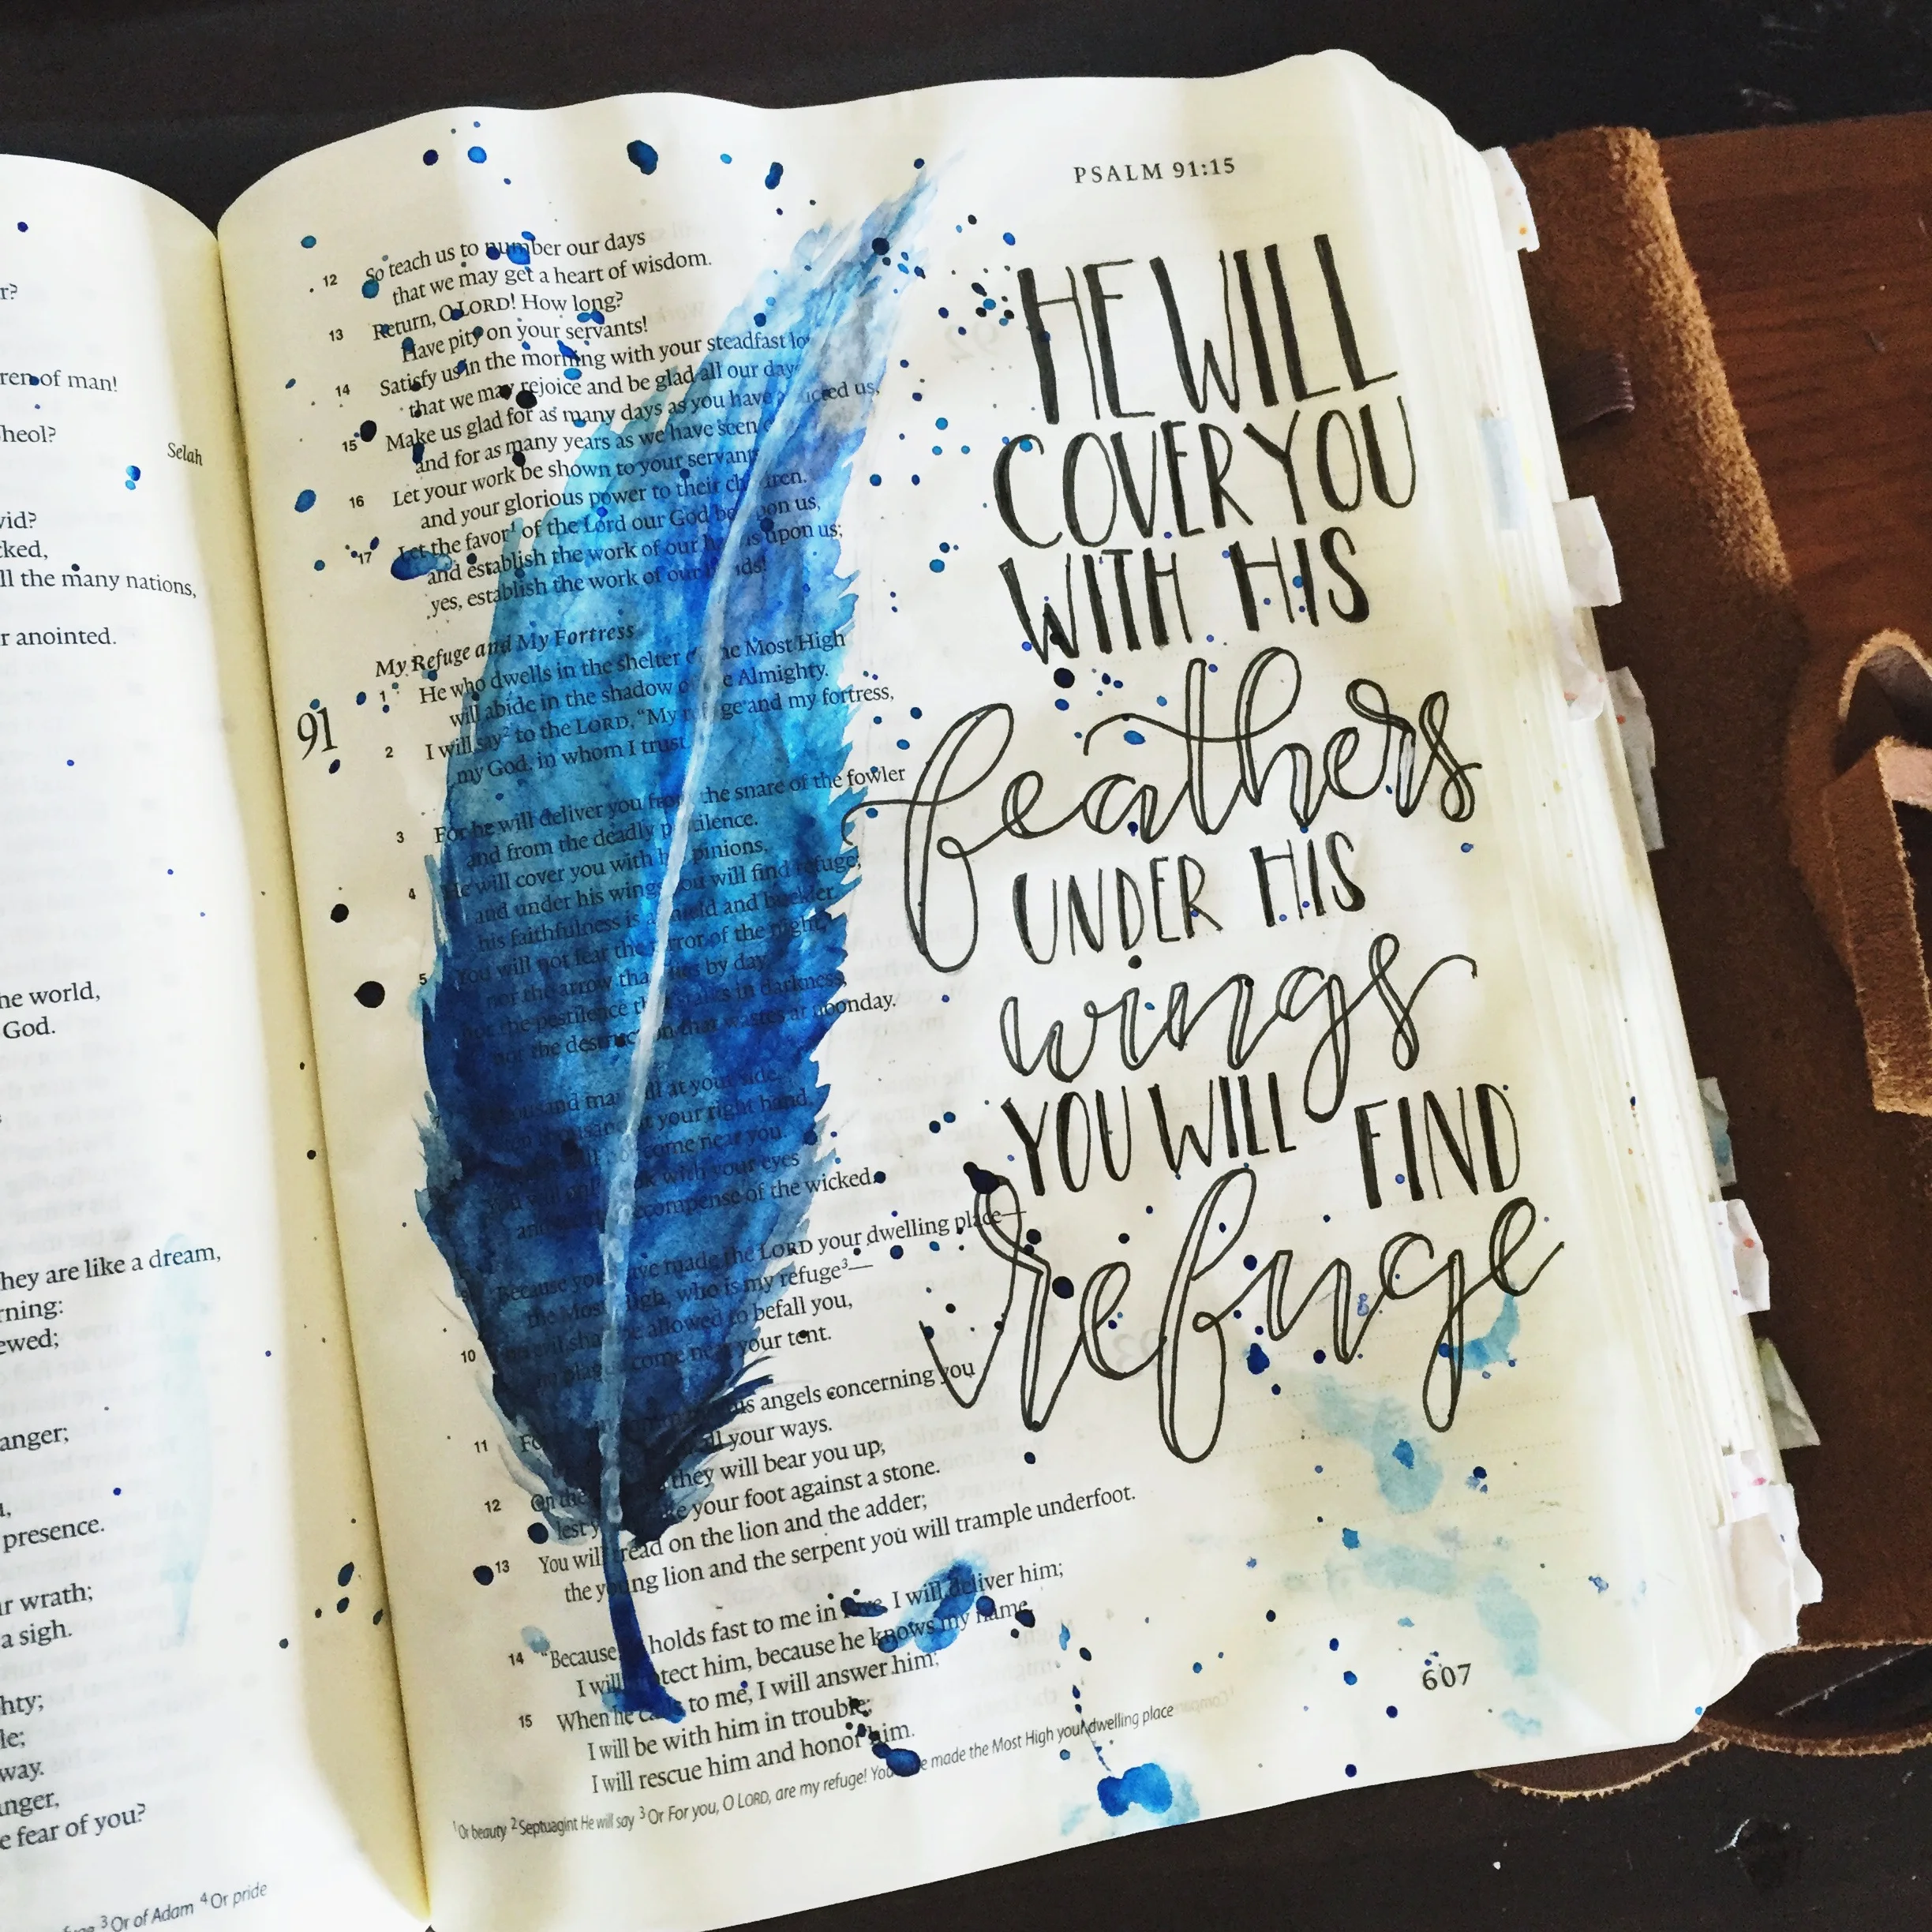 r?
ren of man!
heol?
Selah
vid?
cked,
ll the many nations,
r anointed.
he world,
God.
hey are like a dream,
rning:
ewed;
anger;
presence.
r wrath;
a sigh.
hty;
le;
way.
nger,
e fear of you?
3 Or of Adam 4 Or pride
PSALM 91:15
12 So teach us to number our days
that we may get a heart of wisdom.
13 Return, O LORD! How long?
Have pity on your servants!
14 Satisfy us in the morning with your steadfast lo
that we may rejoice and be glad all our day
15 Make us glad for as many days as you have icted us,
and for as many years as we have seen
16 Let your work be shown to your servant
and your glorious power to their children.
17 Let the favor1 of the Lord our God be upon us,
and establish the work of our h s upon us;
yes, establish the work of our hands!
My Refuge and My Fortress
91
1 He who dwells in the shelter of the Most High
will abide in the shadow of the Almighty.
2 I will say2 to the LORD, “My refuge and my fortress,
my God, in whom I trust
3 For he will deliver you from the snare of the fowler
and from the deadly pestilence.
4 He will cover you with his pinions,
and under his wings you will find refuge;
his faithfulness is a shield and buckler.
5 You will not fear the terror of the night,
nor the arrow that flies by day,
nor the pestilence that stalks in darkness,
nor the destruction that wastes at noonday.
7 thousand may fall at your side,
at your right hand,
come near you.
You will only look with your eyes
and recompense of the wicked.
Because you have made the LORD your dwelling place—
the Most High, who is my refuge3—
10 no evil shall be allowed to befall you,
no plague come near your tent.
11 For his angels concerning you
all your ways.
12 On their they will bear you up,
lest you strike your foot against a stone.
13 You will tread on the lion and the adder;
the young lion and the serpent you will trample underfoot.
14 “Because he holds fast to me in love, I will deliver him;
I will protect him, because he knows my name.
15 When he calls to me, I will answer him;
I will be with him in trouble;
I will rescue him and honor him.
1 Or beauty 2 Septuagint He will say 3 Or For you, O LORD, are my refuge! You have made the Most High your dwelling place
HE WILL
COVER YOU
WITH HIS
feathers
UNDER HIS
wings
YOU WILL FIND
refuge
607